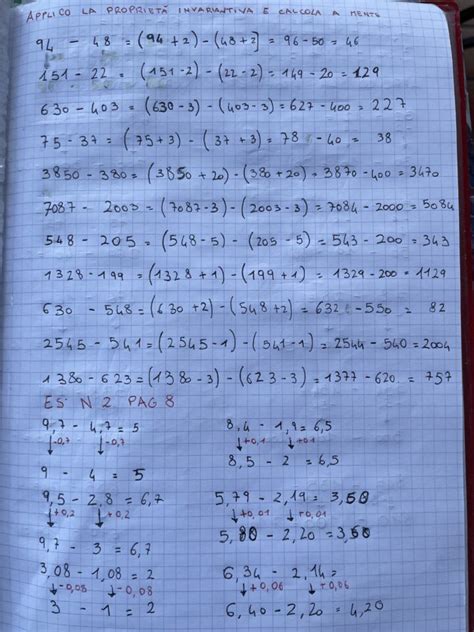 APPLICO LA PROPRIETÀ INVARIANTIVA E CALCOLA A MENTE
94 - 48 = (94 + 2) - (48 + 2] = 96 - 50 = 46
151 - 22 = (151 - 2) - (22 - 2) = 149 - 20 = 129
630 - 403 = (630 - 3) - (403 - 3) = 627 - 400 = 227
75 - 37 = (75 + 3) - (37 + 3) = 78 - 40 = 38
3850 - 380 = (3850 + 20) - (380 + 20) = 3870 - 400 = 3470
7087 - 2003 = (7087 - 3) - (2003 - 3) = 7084 - 2000 = 5084
548 - 205 = (548 - 5) - (205 - 5) = 543 - 200 = 343
1328 - 199 = (1328 + 1) - (199 + 1) = 1329 - 200 = 1129
630 - 548 = (630 + 2) - (548 + 2) = 632 - 550 = 82
2545 - 541 = (2545 - 1) - (541 - 1) = 2544 - 540 = 2004
1380 - 623 = (1380 - 3) - (623 - 3) = 1377 - 620 = 757
ES N 2 PAG 8
9,7 - 4,7 = 5
↓-0,7 ↓-0,7
9 - 4 = 5
9,5 - 2,8 = 6,7
↓+0,2 ↓+0,2
9,7 - 3 = 6,7
3,08 - 1,08 = 2
↓-0,08 ↓-0,08
3 - 1 = 2
8,4 - 1,9 = 6,5
↓+0,1 ↓+0,1
8,5 - 2 = 6,5
5,79 - 2,19 = 3,50
↓+0,01 ↓+0,01
5,80 - 2,20 = 3,50
6,34 - 2,14 =
↓+0,06 ↓+0,06
6,40 - 2,20 = 4,20